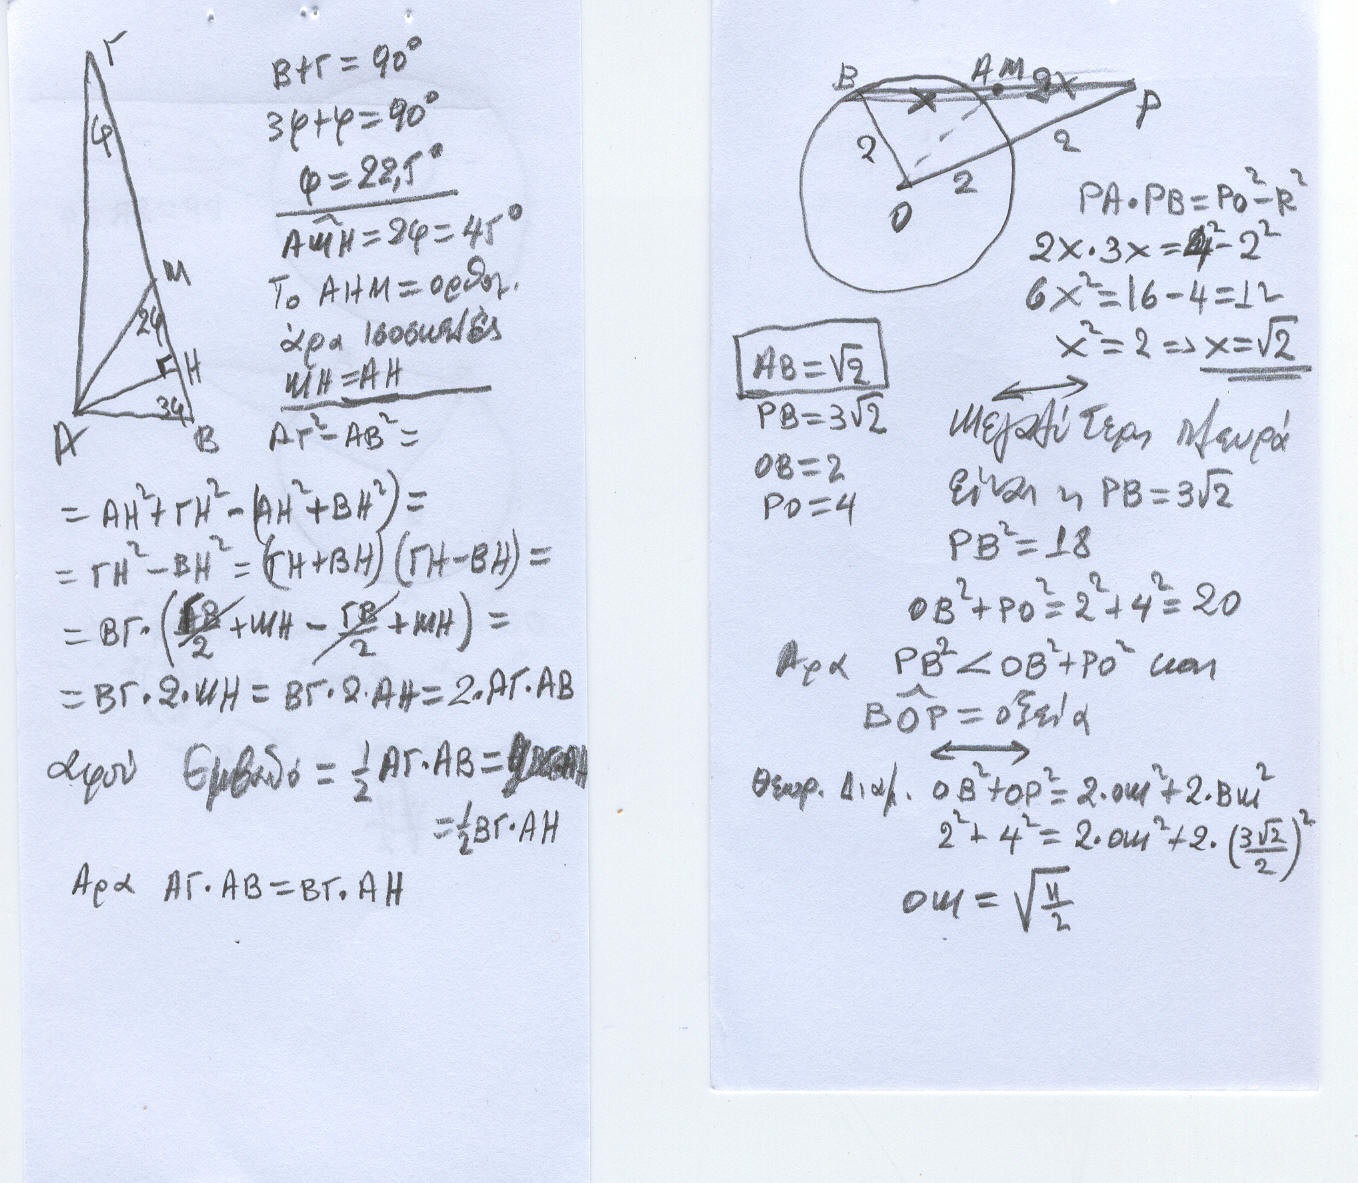 Γ
φ
M
2φ
H
3φ
A
B
B+Γ = 90°
3φ+φ = 90°
φ = 22,5°
AM̂H = 2φ = 45°
Το AHM = ορθογ.
άρα ισοσκελές
MH = AH
ΑΓ² - AB² =
= AH² + ΓH² - (AH² + BH²) =
= ΓH² - BH² = (ΓH + BH) (ΓH - BH) =
= ΒΓ · (ΓΒ/2 + MH - ΓΒ/2 + MH) =
= ΒΓ · 2 · MH = ΒΓ · 2 · AH = 2 · ΑΓ · AB
αφού Εμβαδό = 1/2 ΑΓ · AB =
= 1/2 ΒΓ · AH
Άρα ΑΓ · AB = ΒΓ · AH
B
A M
x
2x
P
2
2
2
O
PA · PB = PO² - R²
2x · 3x = 4² - 2²
6x² = 16 - 4 = 12
x² = 2 => x = √2
AB = √2
PB = 3√2
OB = 2
PO = 4
Μεγαλύτερη πλευρά
είναι η PB = 3√2
PB² = 18
OB² + PO² = 2² + 4² = 20
Άρα PB² < OB² + PO² και
BÔP = οξεία
Θεωρ. Διαμ. OB² + OP² = 2 · OM² + 2 · BM²
2² + 4² = 2 · OM² + 2 · (3√2/2)²
OM = √11/2